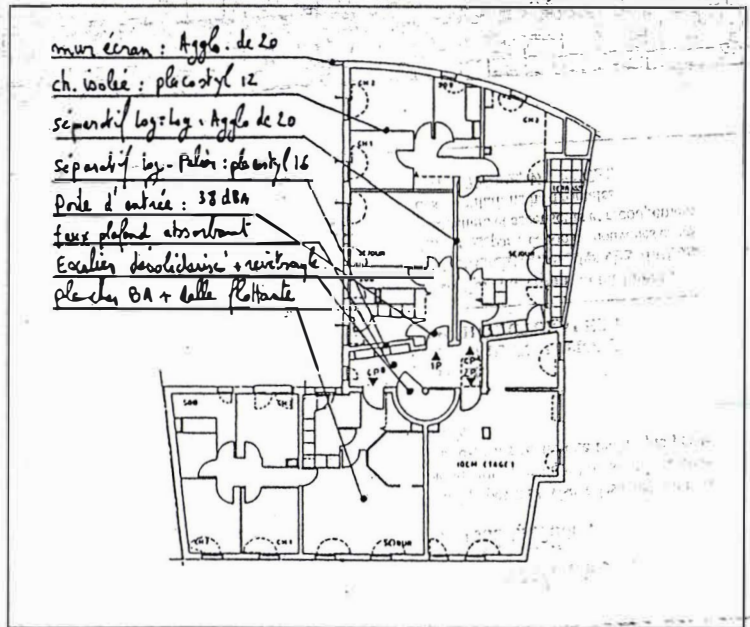 mur écran : Agglo. de 20
ch. isolée : placostyl 12
séparatif Log-Log : Agglo de 20
séparatif Log - Palier : placostyl 16
Porte d'entrée : 38 dBA
faux plafond absorbant
Escalier désolidarisé +
plancher BA + dalle flottante
CH 3
CH 2
CH 1
SEJOUR
SEJOUR
1P
2P
SDB
CH 3
IDEM ETAGE 1
CH 2
CH 1
SEJOUR